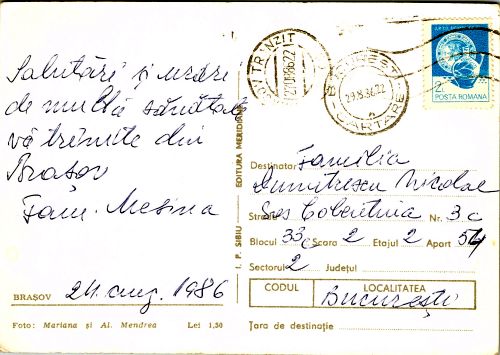 Salutări și urări
de multă sănătate
vă trimite din
Brașov
Fam. Mesina
BRAȘOV
24. aug. 1986
Foto: Mariana și Al. Mendrea Lei 1,50
I. P. SIBIU EDITURA MERIDIANE
TRANZIT
BUCUREȘTI
29.8.86.22
CARTARE
2L
POSTA ROMANA
Destinatar Familia
Dumitrescu Nicolae
Strada Șos Colentina Nr. 3c
Blocul 33c Scara 2 Etajul 2 Apart 54
Sectorul 2 Județul
CODUL LOCALITATEA
București
Țara de destinație